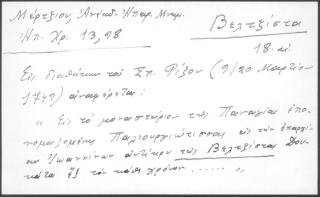 Μέρτζιου, Ἀνέκδ. Ἠπειρ. Μνημ.
Ἠπ. Χρ. 13, 98
Βελτζίστα
18. αἰ
Εἰς διαθήκην τοῦ Σπ. Ρίζου (9/20 Μαρτίου
1749) ἀναφέρεται:
" Εἰς τὸ μοναστήριον τῆς Παναγίας ἐπο-
νομαζομένης Παλιουργιώτισσας εἰς τὴν ἐπαρχί-
αν Ἰωαννίνων ἀντίκρυ τῆς Βελτζίστας Δου-
κάτα ἓξ τὸν κάθε χρόνον ...... "